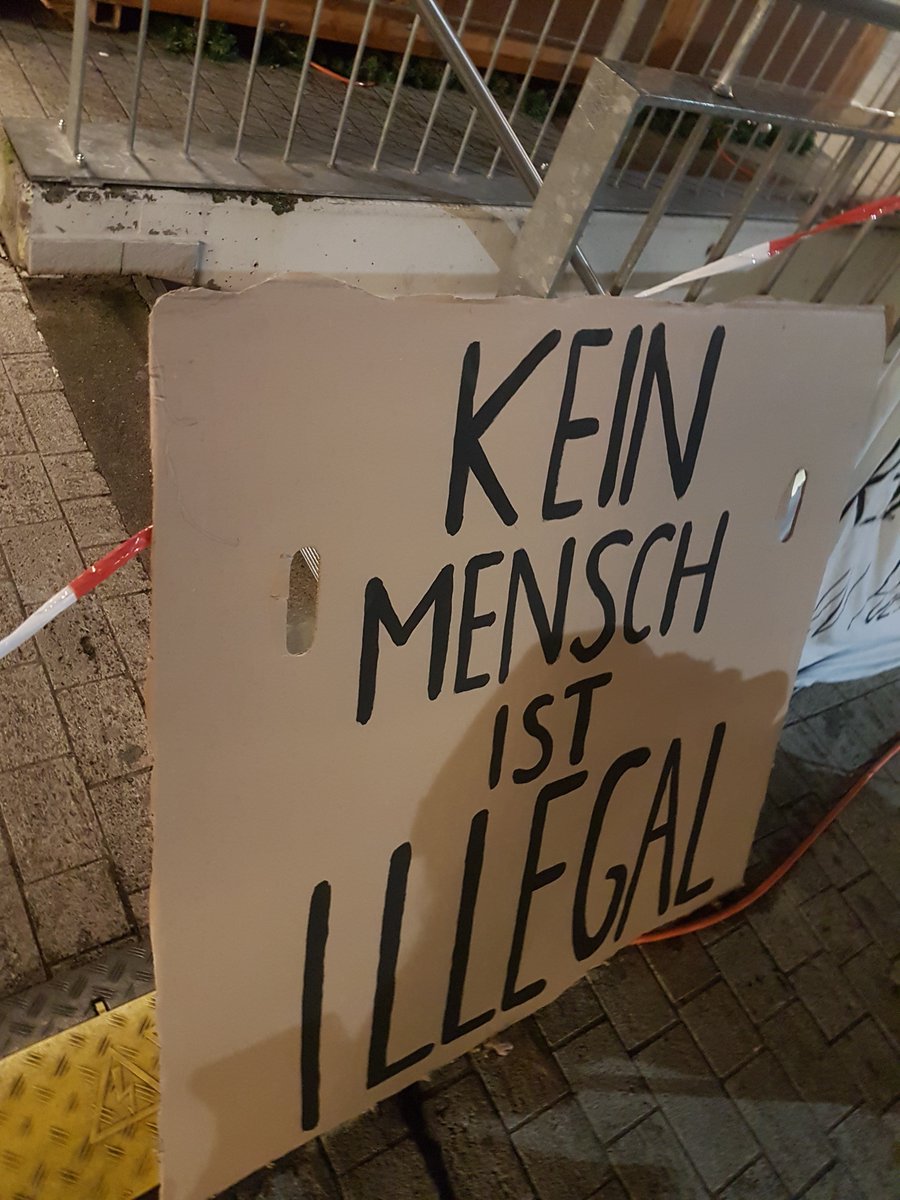 KEIN
MENSCH
IST
ILLEGAL